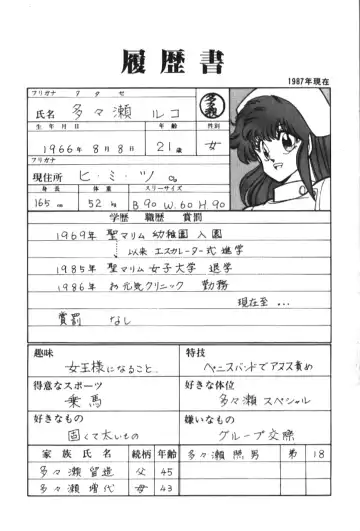 履歴書
1987年現在
フリガナ タタセ
氏名 多々瀬 ルコ
多々瀬
生年月日 年齢 性別
1966年8月8日 21歳 女
フリガナ
現住所 ヒ・ミ・ツ。
身長 体重 スリーサイズ
165cm 52kg B.90 W.60 H.90
学歴 職歴 賞罰
1969年 聖マリム幼稚園 入園
以来 エスカレーター式 進学
1985年 聖マリム女子大学 退学
1986年 お元気クリニック 勤務
現在至…
賞罰 なし
趣味
女王様になること。
特技
ペニスバンドでアヌス責め
得意なスポーツ
乗馬
好きな体位
多々瀬スペシャル
好きなもの
固くて太いもの
嫌いなもの
グループ交際
家族氏名 続柄 年齢
多々瀬 照男 弟 18
多々瀬 留造 父 45
多々瀬 増代 母 43